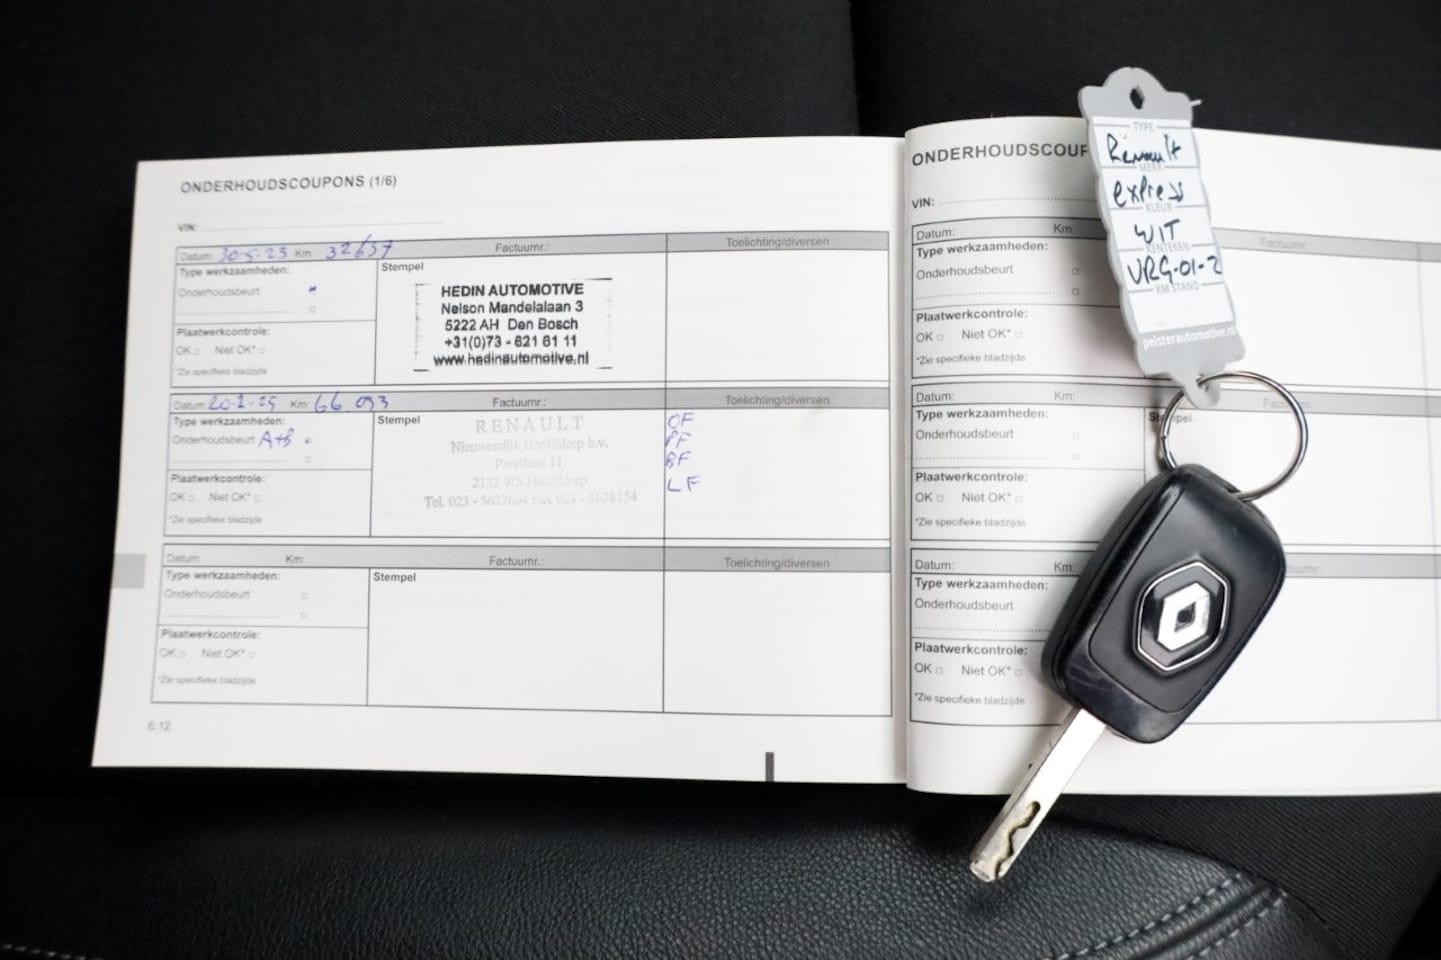 ONDERHOUDSCOUPONS (1/6)
VIN:
Datum: 30-5-23 Km: 32657 Factuurnr.: Toelichting/diversen
Type werkzaamheden:
Onderhoudsbeurt
Plaatwerkcontrole:
OK □ Niet OK* □
*Zie specifieke bladzijde
Stempel
HEDIN AUTOMOTIVE
Nelson Mandelalaan 3
5222 AH Den Bosch
+31(0)73 - 621 61 11
www.hedinautomotive.nl
Datum: Km: 66 093 Factuurnr.: Toelichting/diversen
Type werkzaamheden:
Onderhoudsbeurt A+B
Plaatwerkcontrole:
OK □ Niet OK* □
*Zie specifieke bladzijde
Stempel
RENAULT
Nieuwendijk Hoofddorp b.v.
2132 WS Hoofddorp
Tel. 023 - 5627604 Fax 023 - 5628154
OF
PF
BF
LF
Datum: Km: Factuurnr.: Toelichting/diversen
Type werkzaamheden:
Onderhoudsbeurt □
Plaatwerkcontrole:
OK □ Niet OK* □
*Zie specifieke bladzijde
Stempel
6.12
VIN:
Datum: Km: Factuurnr.:
Type werkzaamheden:
Onderhoudsbeurt □
Plaatwerkcontrole:
OK □ Niet OK* □
*Zie specifieke bladzijde
Datum: Km:
Type werkzaamheden:
Onderhoudsbeurt □
Plaatwerkcontrole:
OK □ Niet OK* □
*Zie specifieke bladzijde
Datum: Km:
Type werkzaamheden:
Onderhoudsbeurt
Plaatwerkcontrole:
OK □ Niet OK* □
*Zie specifieke bladzijde
TYPE
Renault
MERK
express
KLEUR
WIT
KENTEKEN
VRG-01-2
KM STAND
pelsterautomotive.nl